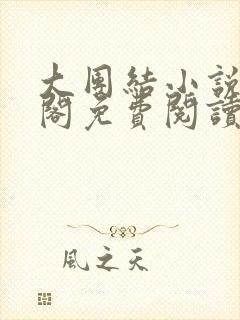 大團結小說
閣免費閱讀
風之天